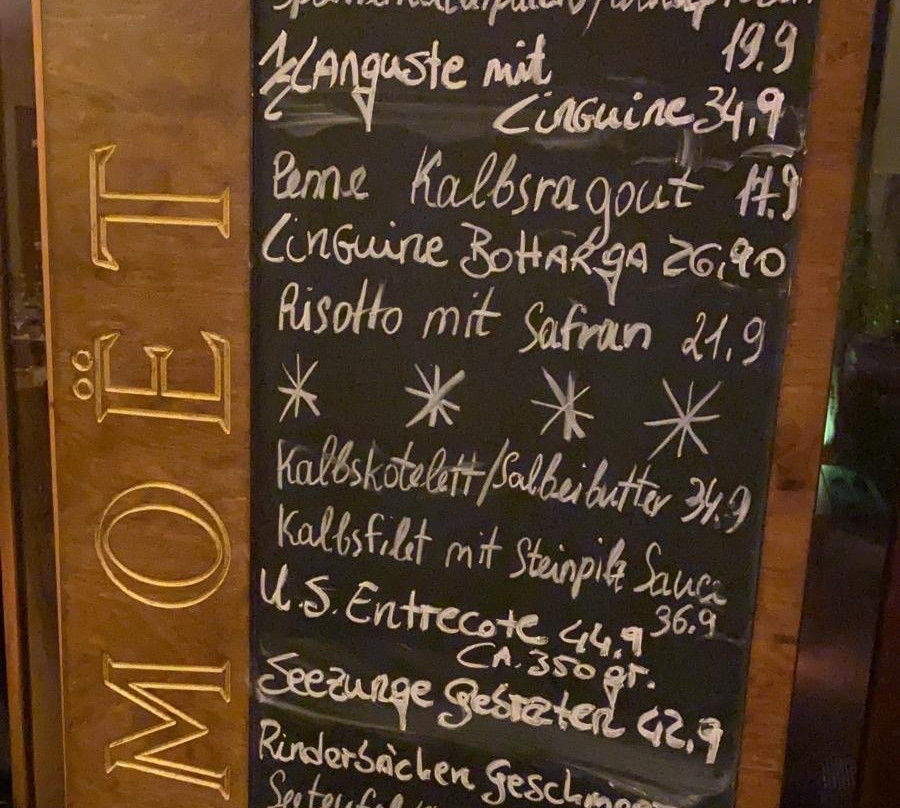 MOËT
19.9
1/2 Languste mit
Linguine 34,9
Penne Kalbsragout 17.9
Linguine BottARgA 26,90
Risotto mit Safran 21,9
Kalbskotelett/Salbeibutter 34.9
Kalbsfilet mit Steinpilz Sauce
36.9
U.S. Entrecote 44.9
CA. 350 gr.
Seezunge gebraten 42,9
Rinderbäcken